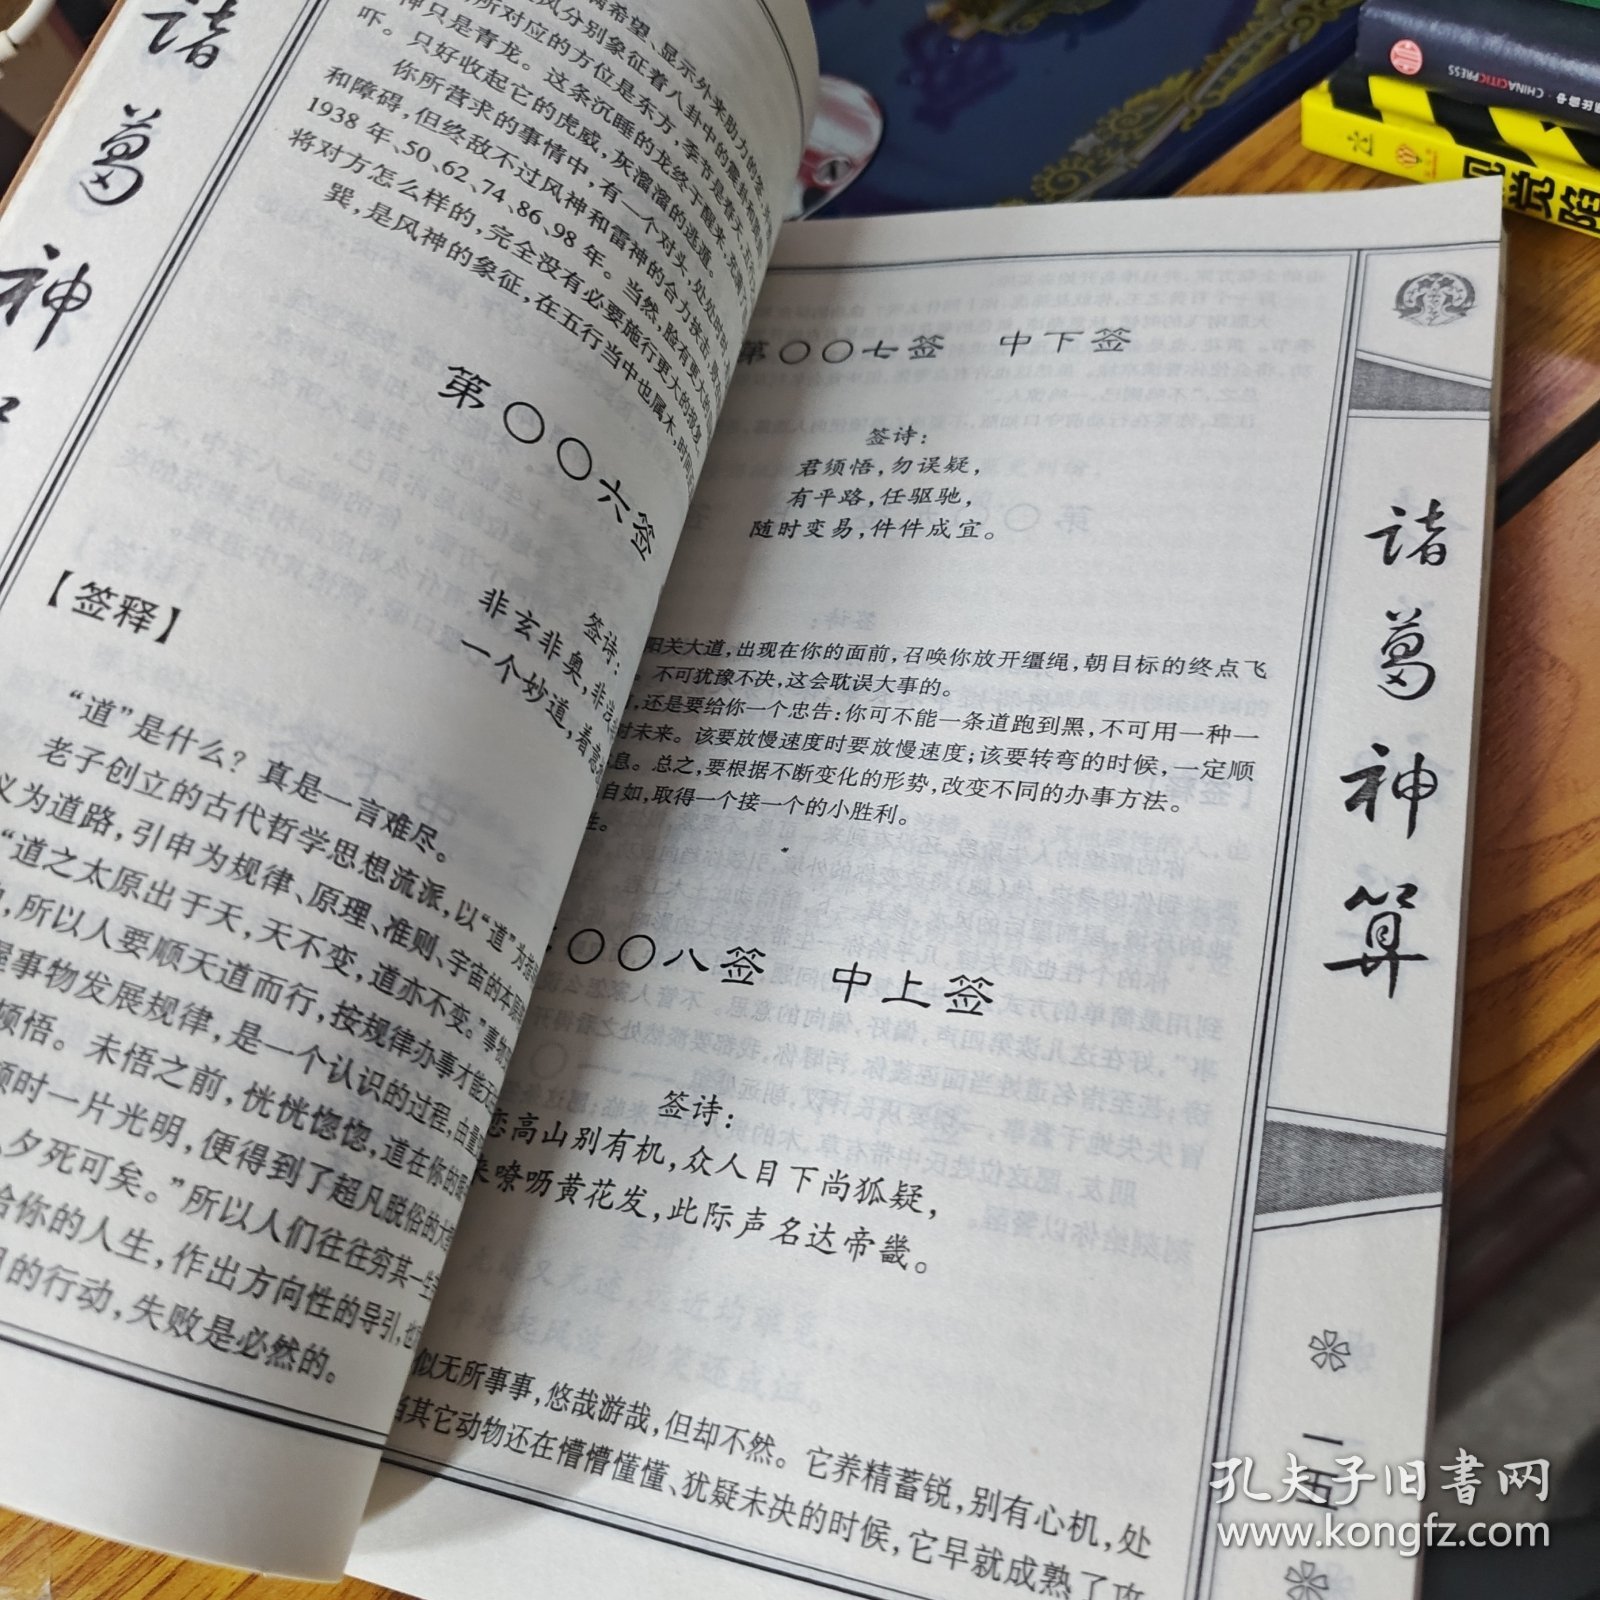 诸葛神
希望、显示外来助力的签
风分别象征着八卦中的震卦和
所对应的方位是东方，季节是春天，五行
神只是青龙。这条沉睡的龙终于醒来，充满了
吓。只好收起它的虎威，灰溜溜的逃遁。
你所营求的事情中，有一个对头，处处时时
和障碍，但终敌不过风神和雷神的合力挟击
1938年、50、62、74、86、98年。当然，脸有更大的
将对方怎么样的，完全没有必要施行更大的报复。
巽，是风神的象征，在五行当中也属木，时间
第〇〇六签
签诗：
非玄非奥，非
一个妙道，着意
【签释】
“道”是什么？真是一言难尽。
老子创立的古代哲学思想流派，以“道”为
义为道路，引申为规律、原理、准则、宇宙的本
“道之太原出于天，天不变，道亦不变。”事物
，所以人要顺天道而行，按规律办事才能无
握事物发展规律，是一个认识的过程，由量
顿悟。未悟之前，恍恍惚惚，道在你的
顿时一片光明，便得到了超凡脱俗的大
，夕死可矣。”所以人们往往穷其一生
给你的人生，作出方向性的导引，也
目的行动，失败是必然的。
第〇〇七签 中下签
签诗：
君须悟，勿误疑，
有平路，任驱驰，
随时变易，件件成宜。
阳关大道，出现在你的面前，召唤你放开缰绳，朝目标的终点飞
。不可犹豫不决，这会耽误大事的。
，还是要给你一个忠告：你可不能一条道跑到黑，不可用一种一
对未来。该要放慢速度时要放慢速度；该要转弯的时候，一定顺
息。总之，要根据不断变化的形势，改变不同的办事方法。
自如，取得一个接一个的小胜利。
性。
〇〇八签 中上签
签诗：
恋高山别有机，众人目下尚狐疑，
来嘹呖黄花发，此际声名达帝畿。
似无所事事，悠哉游哉，但却不然。它养精蓄锐，别有心机，处
当其它动物还在懵懵懂懂、犹疑未决的时候，它早就成熟了攻
诸葛神算
一五
CHINACITICPRESS
孔夫子旧书网
www.kongfz.com